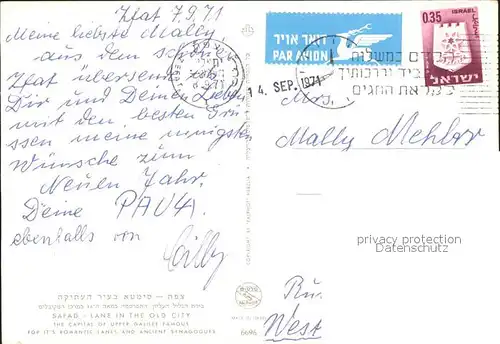 Zfat 7.9.71
Meine liebste Mally
aus dem schönen
Zfat übersende
Dir und Deinen Lieben
mit den besten Grü-
ssen meine innigsten
Wünsche zum
Neuen Jahr.
Deine PAULA
ebenfalls von
Cilly
צפת - סימטא בעיר העתיקה
SAFAD - LANE IN THE OLD CITY
THE CAPITAL OF UPPER GALILEE FAMOUS
FOR IT'S ROMANTIC LANES AND ANCIENT SYNAGOGUES
6696
דואר אויר
PAR AVION
0.35
ISRAEL
ישראל
הקדם במשלוח
יך וידידותיך
לקראת החגים
14. SEP. 1971
Mrs.
Mally Mehlar
West
privacy protection
watermark